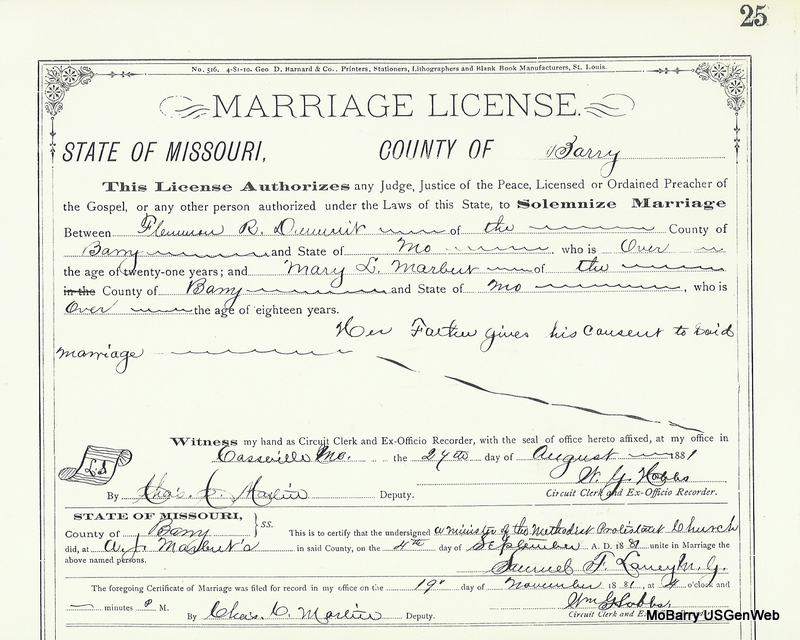 25
No. 516. 4-81-10. Geo D. Barnard & Co., Printers, Stationers, Lithographers and Blank Book Manufacturers, St. Louis.
MARRIAGE LICENSE.
STATE OF MISSOURI, COUNTY OF Barry
This License Authorizes any Judge, Justice of the Peace, Licensed or Ordained Preacher of
the Gospel, or any other person authorized under the Laws of this State, to Solemnize Marriage
Between R. of the County of
Barry and State of Mo who is Over
the age of twenty-one years; and Mary L. Marbut of the
in the County of Barry and State of Mo, who is
Over the age of eighteen years.
Her Father gives his consent to said
marriage
Witness my hand as Circuit Clerk and Ex-Officio Recorder, with the seal of office hereto affixed, at my office in
Cassville Mo. the 27th day of August 1881
L.S
W. G. Hobbs
By Chas. C. Deputy. Circuit Clerk and Ex-Officio Recorder.
STATE OF MISSOURI,
County of Barry ss. This is to certify that the undersigned a minister of the Methodist Protestant Church
did, at A. J. Marbut's in said County, on the 4th day of September A. D. 1881 unite in Marriage the
above named persons. Samuel F. Laney M. G.
The foregoing Certificate of Marriage was filed for record in my office on the 19" day of November 1881, at 4 o'clock and
minutes P M. Wm G Hobbs
By Chas. C. Deputy. Circuit Clerk and Ex
MoBarry USGenWeb